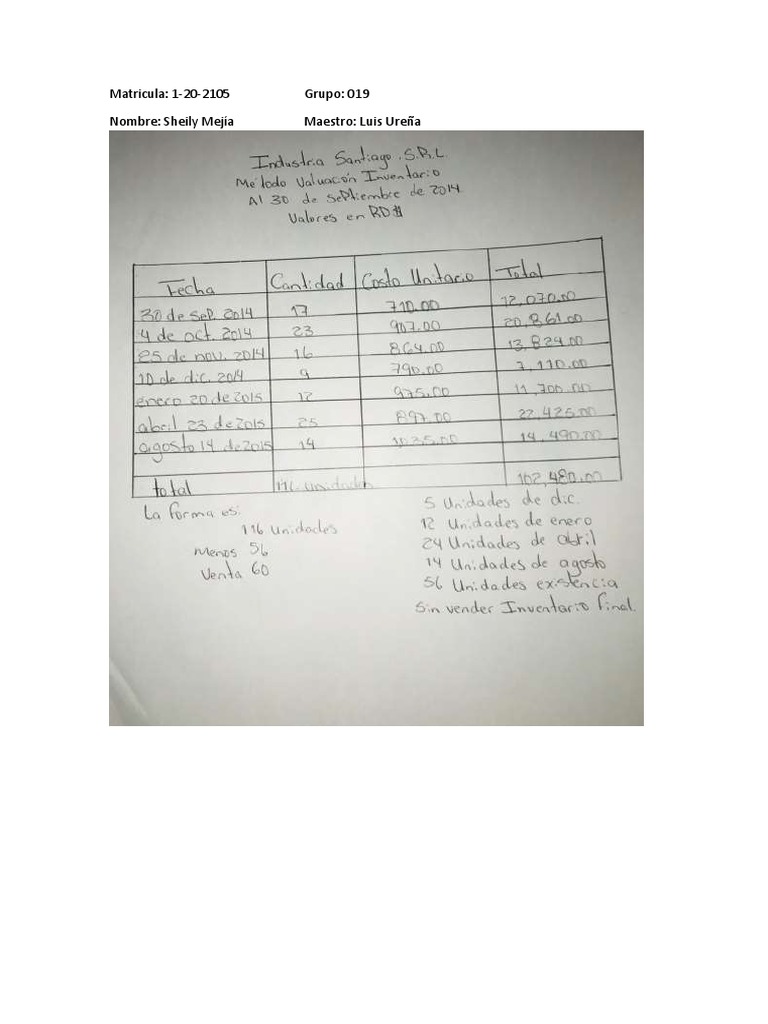 Matricula: 1-20-2105 Grupo: 019
Nombre: Sheily Mejía Maestro: Luis Ureña
Industria Santiago. S.R.L
Método Valuación Inventario
Al 30 de septiembre de 2014
Valores en RD$
Fecha Cantidad Costo Unitario Total
30 de sep. 2014 17 710.00 12,070.00
4 de oct. 2014 23 907.00 20,861.00
25 de nov. 2014 16 864.00 13,824.00
10 de dic. 2014 9 790.00 7,110.00
enero 20 de 2015 12 975.00 11,700.00
abril 23 de 2015 25 897.00 22,425.00
agosto 14 de 2015 14 1035.00 14,490.00
total 116 unidades 102,480.00
La forma es:
116 Unidades
Menos 56
Venta 60
5 Unidades de dic.
12 Unidades de enero
24 Unidades de abril
14 Unidades de agosto
56 Unidades existencia
Sin vender Inventario final.